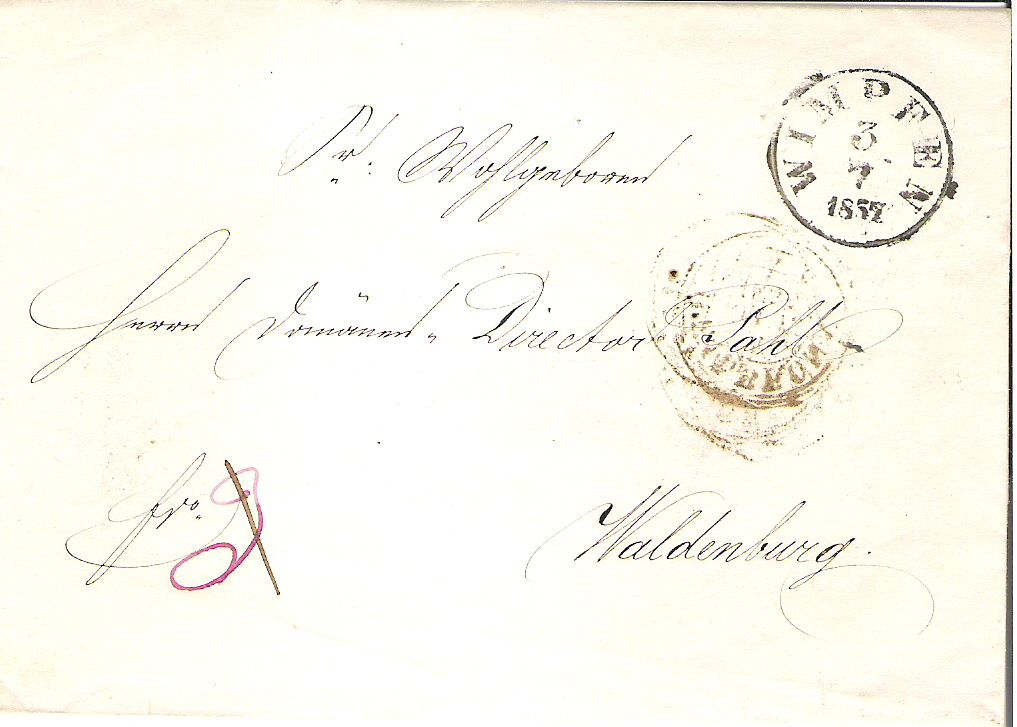 WIMPFEN
3
7
1857
Sr. Wohlgeboren
Herrn Domänen-Director Sahl
fro. 3
Waldenburg.